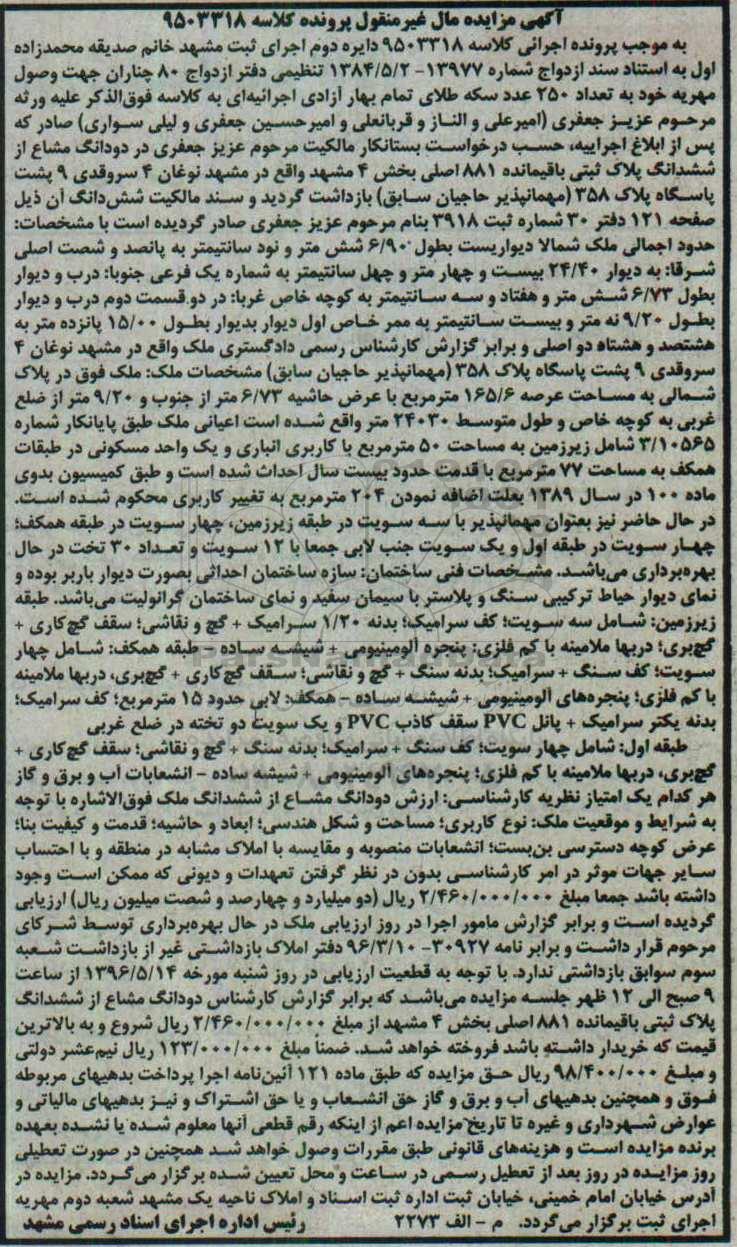 آگهی مزایده مال غیرمنقول پرونده کلاسه ۹۵۰۳۳۱۸
به موجب پرونده اجرائی کلاسه ۹۵۰۳۳۱۸ دایره دوم اجرای ثبت مشهد خانم صدیقه محمدزاده
اول به استناد سند ازدواج شماره ۱۳۹۷۷- ۱۳۸۴/۵/۲ تنظیمی دفتر ازدواج ۸۰ چناران جهت وصول
مهریه خود به تعداد ۲۵۰ عدد سکه طلای تمام بهار آزادی اجرائیه‌ای به کلاسه فوق‌الذکر علیه ورثه
مرحوم عزیز جعفری (امیرعلی و الناز و قربانعلی و امیرحسین جعفری و لیلی سواری) صادر که
پس از ابلاغ اجراییه، حسب درخواست بستانکار مالکیت مرحوم عزیز جعفری در دودانگ مشاع از
ششدانگ پلاک ثبتی باقیمانده ۸۸۱ اصلی بخش ۴ مشهد واقع در مشهد نوغان ۴ سروقدی ۹ پشت
پاسگاه پلاک ۳۵۸ (مهمانپذیر حاجیان سابق) بازداشت گردید و سند مالکیت شش‌دانگ آن ذیل
صفحه ۱۲۱ دفتر ۳۰ شماره ثبت ۳۹۱۸ بنام مرحوم عزیز جعفری صادر گردیده است با مشخصات:
حدود اجمالی ملک شمالا دیواریست بطول ۶/۹۰ شش متر و نود سانتیمتر به پانصد و شصت اصلی
شرقا: به دیوار ۲۴/۴۰ بیست و چهار متر و چهل سانتیمتر به شماره یک فرعی جنوبا: درب و دیوار
بطول ۶/۷۳ شش متر و هفتاد و سه سانتیمتر به کوچه خاص غربا: در دو قسمت دوم درب و دیوار
بطول ۹/۲۰ نه متر و بیست سانتیمتر به ممر خاص اول دیوار بدیوار بطول ۱۵/۰۰ پانزده متر به
هشتصد و هشتاد دو اصلی و برابر گزارش کارشناس رسمی دادگستری ملک واقع در مشهد نوغان ۴
سروقدی ۹ پشت پاسگاه پلاک ۳۵۸ (مهمانپذیر حاجیان سابق) مشخصات ملک: ملک فوق در پلاک
شمالی به مساحت عرصه ۱۶۵/۶ مترمربع با عرض حاشیه ۶/۷۳ متر از جنوب و ۹/۲۰ متر از ضلع
غربی به کوچه خاص و طول متوسط ۲۴۰۳۰ متر واقع شده است اعیانی ملک طبق پایانکار شماره
۳/۱۰۵۶۵ شامل زیرزمین به مساحت ۵۰ مترمربع با کاربری انباری و یک واحد مسکونی در طبقات
همکف به مساحت ۷۷ مترمربع با قدمت حدود بیست سال احداث شده است و طبق کمیسیون بدوی
ماده ۱۰۰ در سال ۱۳۸۹ بعلت اضافه نمودن ۲۰۴ مترمربع به تغییر کاربری محکوم شده است.
در حال حاضر نیز بعنوان مهمانپذیر با سه سویت در طبقه زیرزمین، چهار سویت در طبقه همکف؛
چهار سویت در طبقه اول و یک سویت جنب لابی جمعا با ۱۲ سویت و تعداد ۳۰ تخت در حال
بهره‌برداری می‌باشد. مشخصات فنی ساختمان: سازه ساختمان احداثی بصورت دیوار باربر بوده و
نمای دیوار حیاط ترکیبی سنگ و پلاستر با سیمان سفید و نمای ساختمان گرانولیت می‌باشد. طبقه
زیرزمین: شامل سه سویت؛ کف سرامیک؛ بدنه ۱/۲۰ سرامیک + گچ و نقاشی؛ سقف گچ‌کاری +
گچ‌بری؛ دربها ملامینه با کم فلزی؛ پنجره آلومینیومی + شیشه ساده - طبقه همکف: شامل چهار
سویت؛ کف سنگ + سرامیک؛ بدنه سنگ + گچ و نقاشی؛ سقف گچ‌کاری + گچ‌بری، دربها ملامینه
با کم فلزی؛ پنجره‌های آلومینیومی + شیشه ساده - همکف: لابی حدود ۱۵ مترمربع؛ کف سرامیک؛
بدنه یکتر سرامیک + پانل PVC سقف کاذب PVC و یک سویت دو تخته در ضلع غربی
طبقه اول: شامل چهار سویت؛ کف سنگ + سرامیک؛ بدنه سنگ + گچ و نقاشی؛ سقف گچ‌کاری +
گچ‌بری، دربها ملامینه با کم فلزی؛ پنجره‌های آلومینیومی + شیشه ساده - انشعابات آب و برق و گاز
هر کدام یک امتیاز نظریه کارشناسی: ارزش دودانگ مشاع از ششدانگ ملک فوق‌الاشاره با توجه
به شرایط و موقعیت ملک: نوع کاربری؛ مساحت و شکل هندسی؛ ابعاد و حاشیه؛ قدمت و کیفیت بنا؛
عرض کوچه دسترسی بن‌بست؛ انشعابات منصوبه و مقایسه با املاک مشابه در منطقه و با احتساب
سایر جهات موثر در امر کارشناسی بدون در نظر گرفتن تعهدات و دیونی که ممکن است وجود
داشته باشد جمعا مبلغ ۲/۴۶۰/۰۰۰/۰۰۰ ریال (دو میلیارد و چهارصد و شصت میلیون ریال) ارزیابی
گردیده است و برابر گزارش مامور اجرا در روز ارزیابی ملک در حال بهره‌برداری توسط شرکای
مرحوم قرار داشت و برابر نامه ۳۰۹۲۷- ۹۶/۳/۱۰ دفتر املاک بازداشتی غیر از بازداشت شعبه
سوم سوابق بازداشتی ندارد. با توجه به قطعیت ارزیابی در روز شنبه مورخه ۱۳۹۶/۵/۱۴ از ساعت
۹ صبح الی ۱۲ ظهر جلسه مزایده می‌باشد که برابر گزارش کارشناس دودانگ مشاع از ششدانگ
پلاک ثبتی باقیمانده ۸۸۱ اصلی بخش ۴ مشهد از مبلغ ۲/۴۶۰/۰۰۰/۰۰۰ ریال شروع و به بالاترین
قیمت که خریدار داشته باشد فروخته خواهد شد. ضمناً مبلغ ۱۲۳/۰۰۰/۰۰۰ ریال نیم‌عشر دولتی
و مبلغ ۹۸/۴۰۰/۰۰۰ ریال حق مزایده که طبق ماده ۱۲۱ آئین‌نامه اجرا پرداخت بدهیهای مربوطه
فوق و همچنین بدهیهای آب و برق و گاز حق انشعاب و یا حق اشتراک و نیز بدهیهای مالیاتی و
عوارض شهرداری و غیره تا تاریخ مزایده اعم از اینکه رقم قطعی آنها معلوم شده یا نشده بعهده
برنده مزایده است و هزینه‌های قانونی طبق مقررات وصول خواهد شد همچنین در صورت تعطیلی
روز مزایده در روز بعد از تعطیل رسمی در ساعت و محل تعیین شده برگزار می‌گردد. مزایده در
آدرس خیابان امام خمینی، خیابان ثبت اداره ثبت اسناد و املاک ناحیه یک مشهد شعبه دوم مهریه
اجرای ثبت برگزار می‌گردد. م - الف ۲۲۷۳ رئیس اداره اجرای اسناد رسمی مشهد